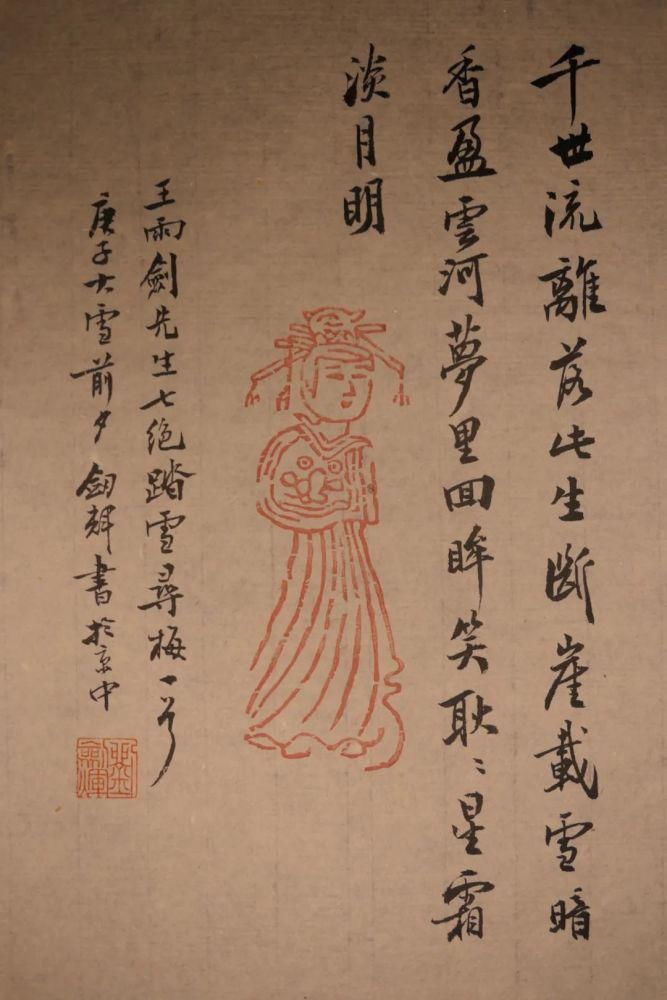 千世流離落此生斷崖載雪暗
香盈雲河夢里回眸笑耿〻星霜
淡月明
王雨劍先生七绝踏雪尋梅一首
庚子大雪前夕劍輝書於京中